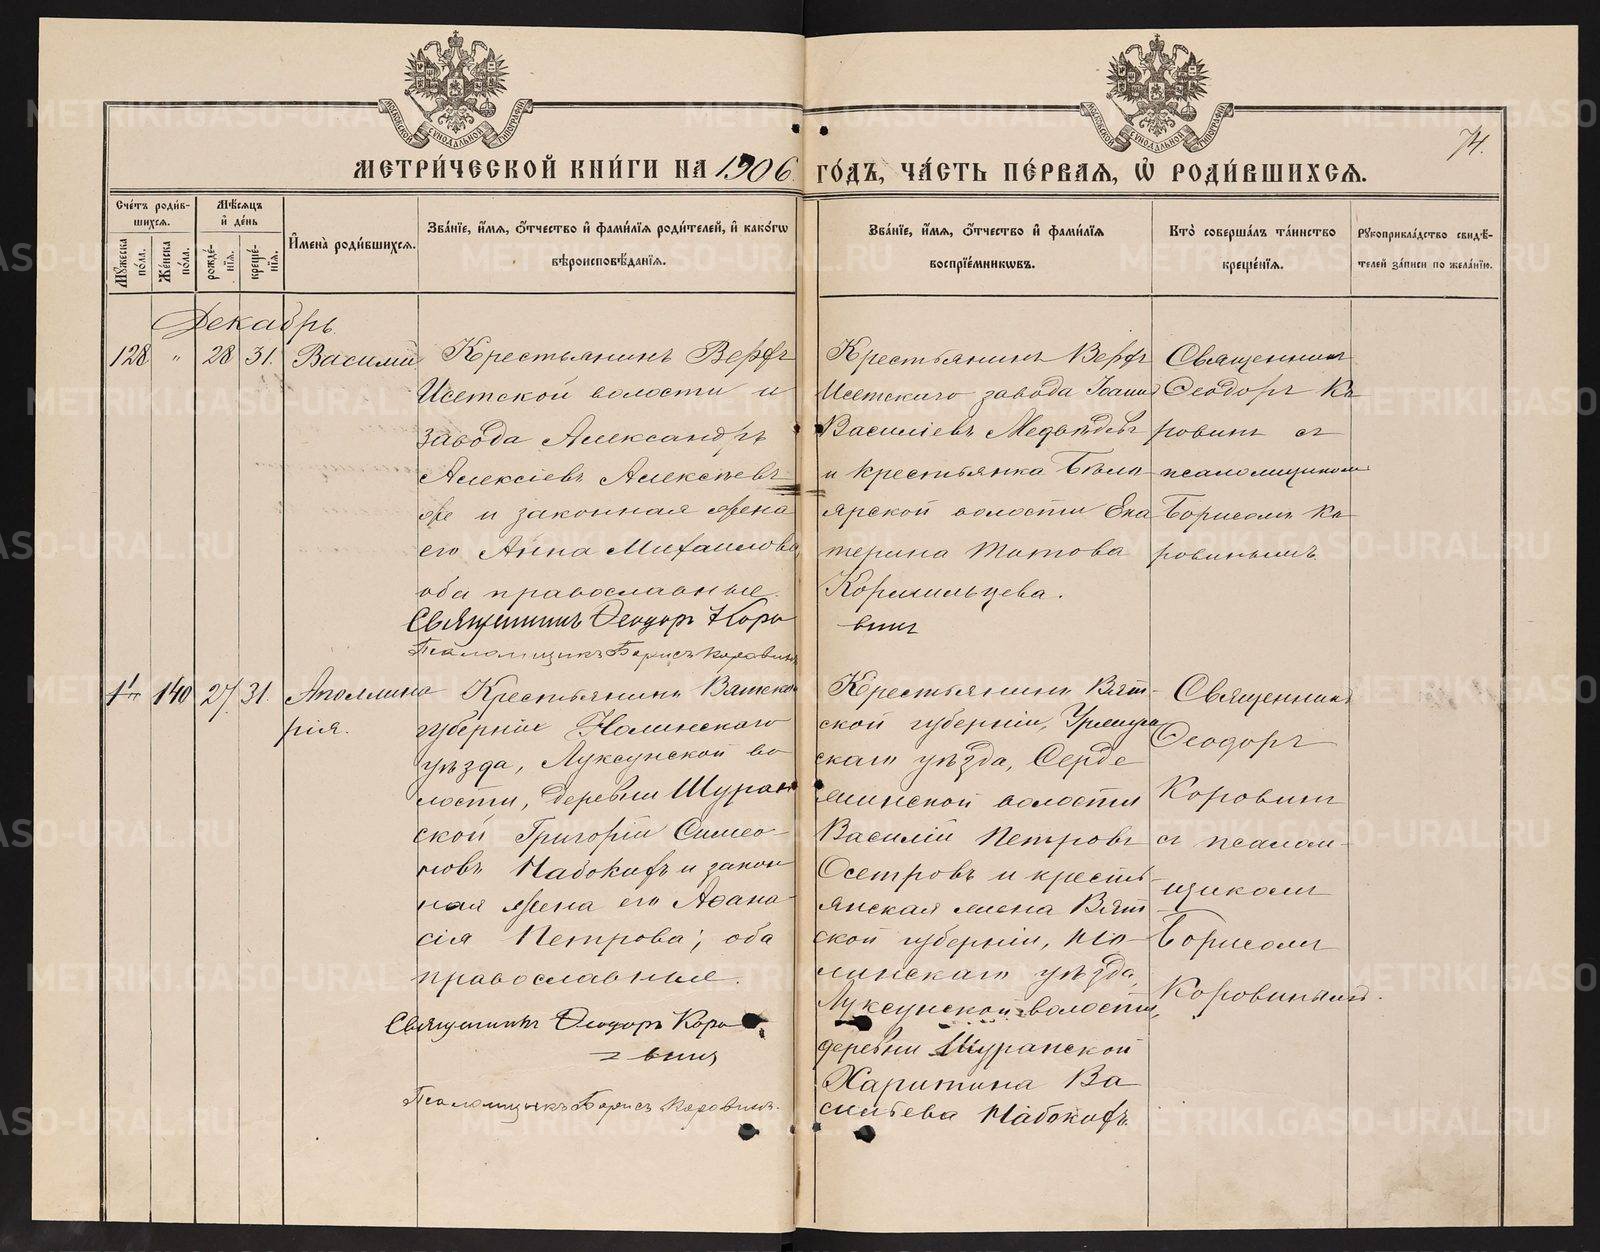 74.
МЕТРИ́ЧЕСКОЙ КНИ́ГИ НА 1906 ГО́ДЪ, ЧА́СТЬ ПЕ́РВАЯ, Ѡ҆ РОДИ́ВШИХСЯ.
Сче́тъ роди́вшихся.
Мꙋ́жеска по́ла.
Же́нска по́ла.
Мѣ́сяцъ и҆ де́нь
рожде́нїя.
креще́нїя.
И҆мена̀ роди́вшихся.
Зва́нїе, и҆́мя, ѻ҆́тчество и҆ фами́лїя роди́телей, и҆ како́гѡ
вѣроисповѣ́данїя.
Зва́нїе, и҆́мя, ѻ҆́тчество и҆ фами́лїя
воспрїе́мникѡвъ.
Кто̀ соверша́лъ та́инство
креще́нїя.
Рꙋкоприкла́дство свидѣ́-
телей за́писи по жела́нїю.
Декабрь.
128 " 28 31. Василій
Крестьянинъ Верхъ
Исетской волости и
завода Александръ
Алексіевъ Алексѣевъ
же и законная жена
его Анна Михаилова
оба православные.
Священникъ Ѳеодоръ Коро
винъ
Псаломщикъ Борисъ Коровинъ
Крестьянинъ Верхъ
Исетскаго завода Іоаннъ
Василіевъ Медвѣдевъ
и крестьянка Бѣло
ярской волости Ека
терина Титова
Кормильцева.
Священникъ
Ѳеодоръ Ко
ровинъ съ
псаломщикомъ
Борисомъ Ко
ровинымъ
140 27 31. Аполлина
рія.
Крестьянинъ Вятской
губерніи Нолинскаго
уѣзда, Луксунской во
лости, деревни Шуран
ской Григорій Симео
новъ Набокихъ и закон
ная жена его Аѳана
сія Петрова; оба
православные.
Священникъ Ѳеодоръ Коро
винъ
Псаломщикъ Борисъ Коровинъ.
Крестьянинъ Вят-
ской губерніи, Уржум
скаго уѣзда, Серде
жинской волости
Василій Петровъ
Осетровъ и кресть
янская жена Вят
ской губерніи, Но
линскаго уѣзда,
Луксунской волости,
деревни Шуранской
Харитина Ва
сильева Набокихъ.
Священникъ
Ѳеодоръ
Коровинъ
съ псалом-
щикомъ
Борисомъ
Коровинымъ.
METRIKI.GASO-URAL.RU